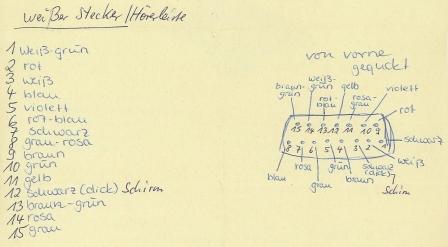 weißer Stecker/Hörerleiste
1 weiß-grün
2 rot
3 weiß
4 blau
5 violett
6 rot-blau
7 schwarz
8 grau-rosa
9 braun
10 grün
11 gelb
12 schwarz (dick) Schirm
13 braun-grün
14 rosa
15 grau
von vorne
geguckt
braun-
grün
weiß-
grün
rot-
blau
gelb
rosa-
grau
violett
rot
15 14 13 12 11 10 9
8 7 6 5 4 3 2 1
schwarz
weiß
blau
rosa
grau
grün
braun
schwarz
(dick)
Schirm